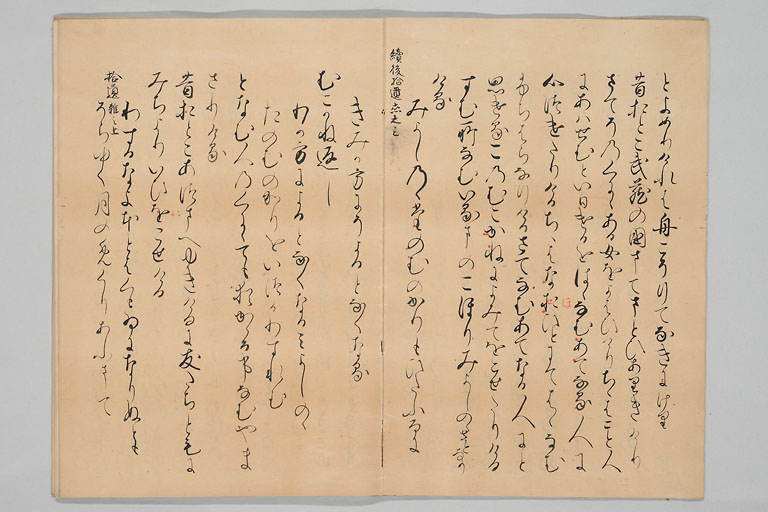 とよめりけれは舟こそりてなきにけり
昔おとこ武蔵の国まてまとひありきけり
さてその国にある女をよはひけりちゝはこと人
にあはせむといひけるをはゝなむあてなる人に
心つけたりけるちゝはなおひとにてはゝなむ
ふちはらなりけるさてなむあてなる人にと
思ひけるこのむこかねによみてをこせたりける
すむ所なむいるまのこほりみよしのゝさとなり
ける
續後拾遺
みよしのゝたのむのかりもひたふるに
きみか方にそよるとなくなる
むこかね返し
わか方によるとなくなるみよしのゝ
たのむのかりをいつかわすれむ
となむ人のくにゝても猶かゝる事なむやま
さりける
昔おとこあつまへゆきけるに友たちともに
みちよりいひをこせける
拾遺 雑上
わするなよほとは雲ゐになりぬとも
そらゆく月のめくりあふまて